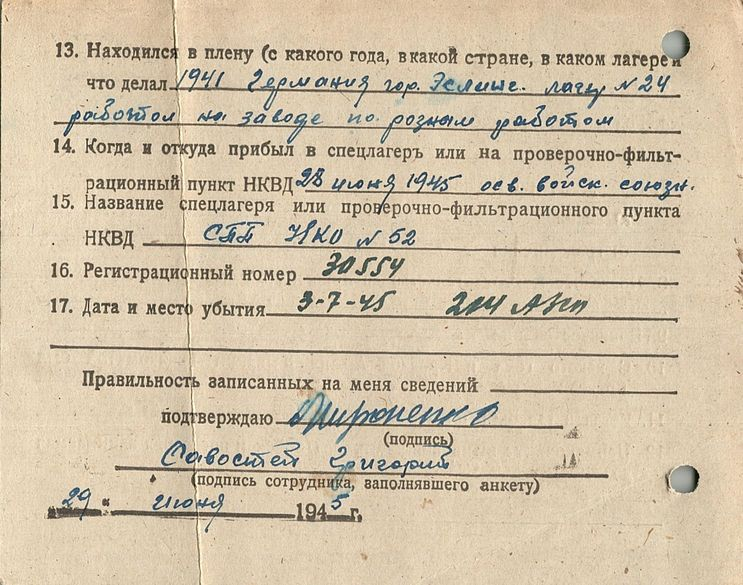 13. Находился в плену (с какого года, в какой стране, в каком лагере и
что делал 1941 Германия гор. Эслинг. лагер N 24
работол на заводе по розным работом
14. Когда и откуда прибыл в спецлагеръ или на проверочно-фильт-
рационный пункт НКВД 28 июня 1945 осв. войск. союзн.
15. Название спецлагеря или проверочно-фильтрационного пункта
НКВД СПП НКО N 52
16. Регистрационный номер 30554
17. Дата и место убытия 3-7-45 204 АЗСП
Правильность записанных на меня сведений
подтверждаю Мироненко
(подпись)
Савостей Григорий
(подпись сотрудника, заполнявшего анкету)
„29“ июня 1945 г.